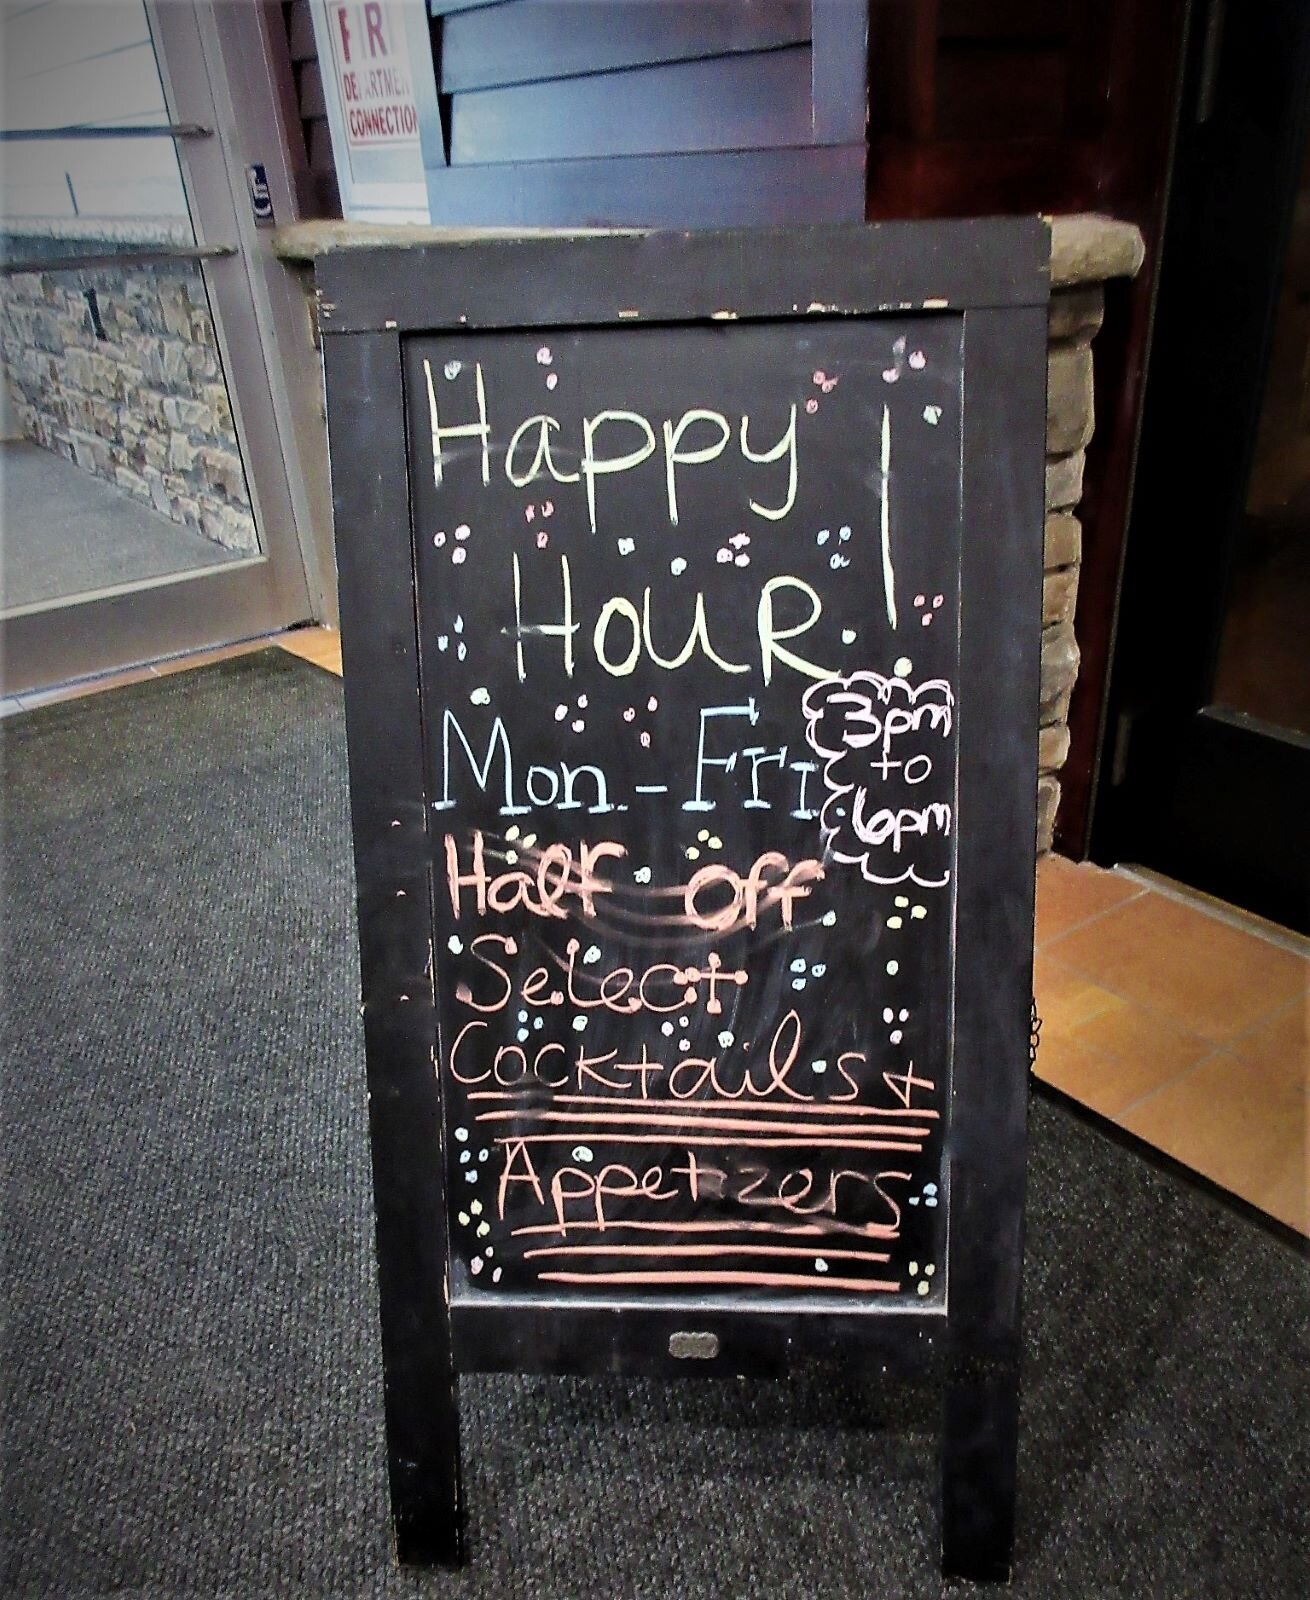 FIR
DEPARTMEN
CONNECTION
Happy
Hour!
Mon-Fri
3pm
to
6pm
Half off
Select
Cocktails +
Appetizers